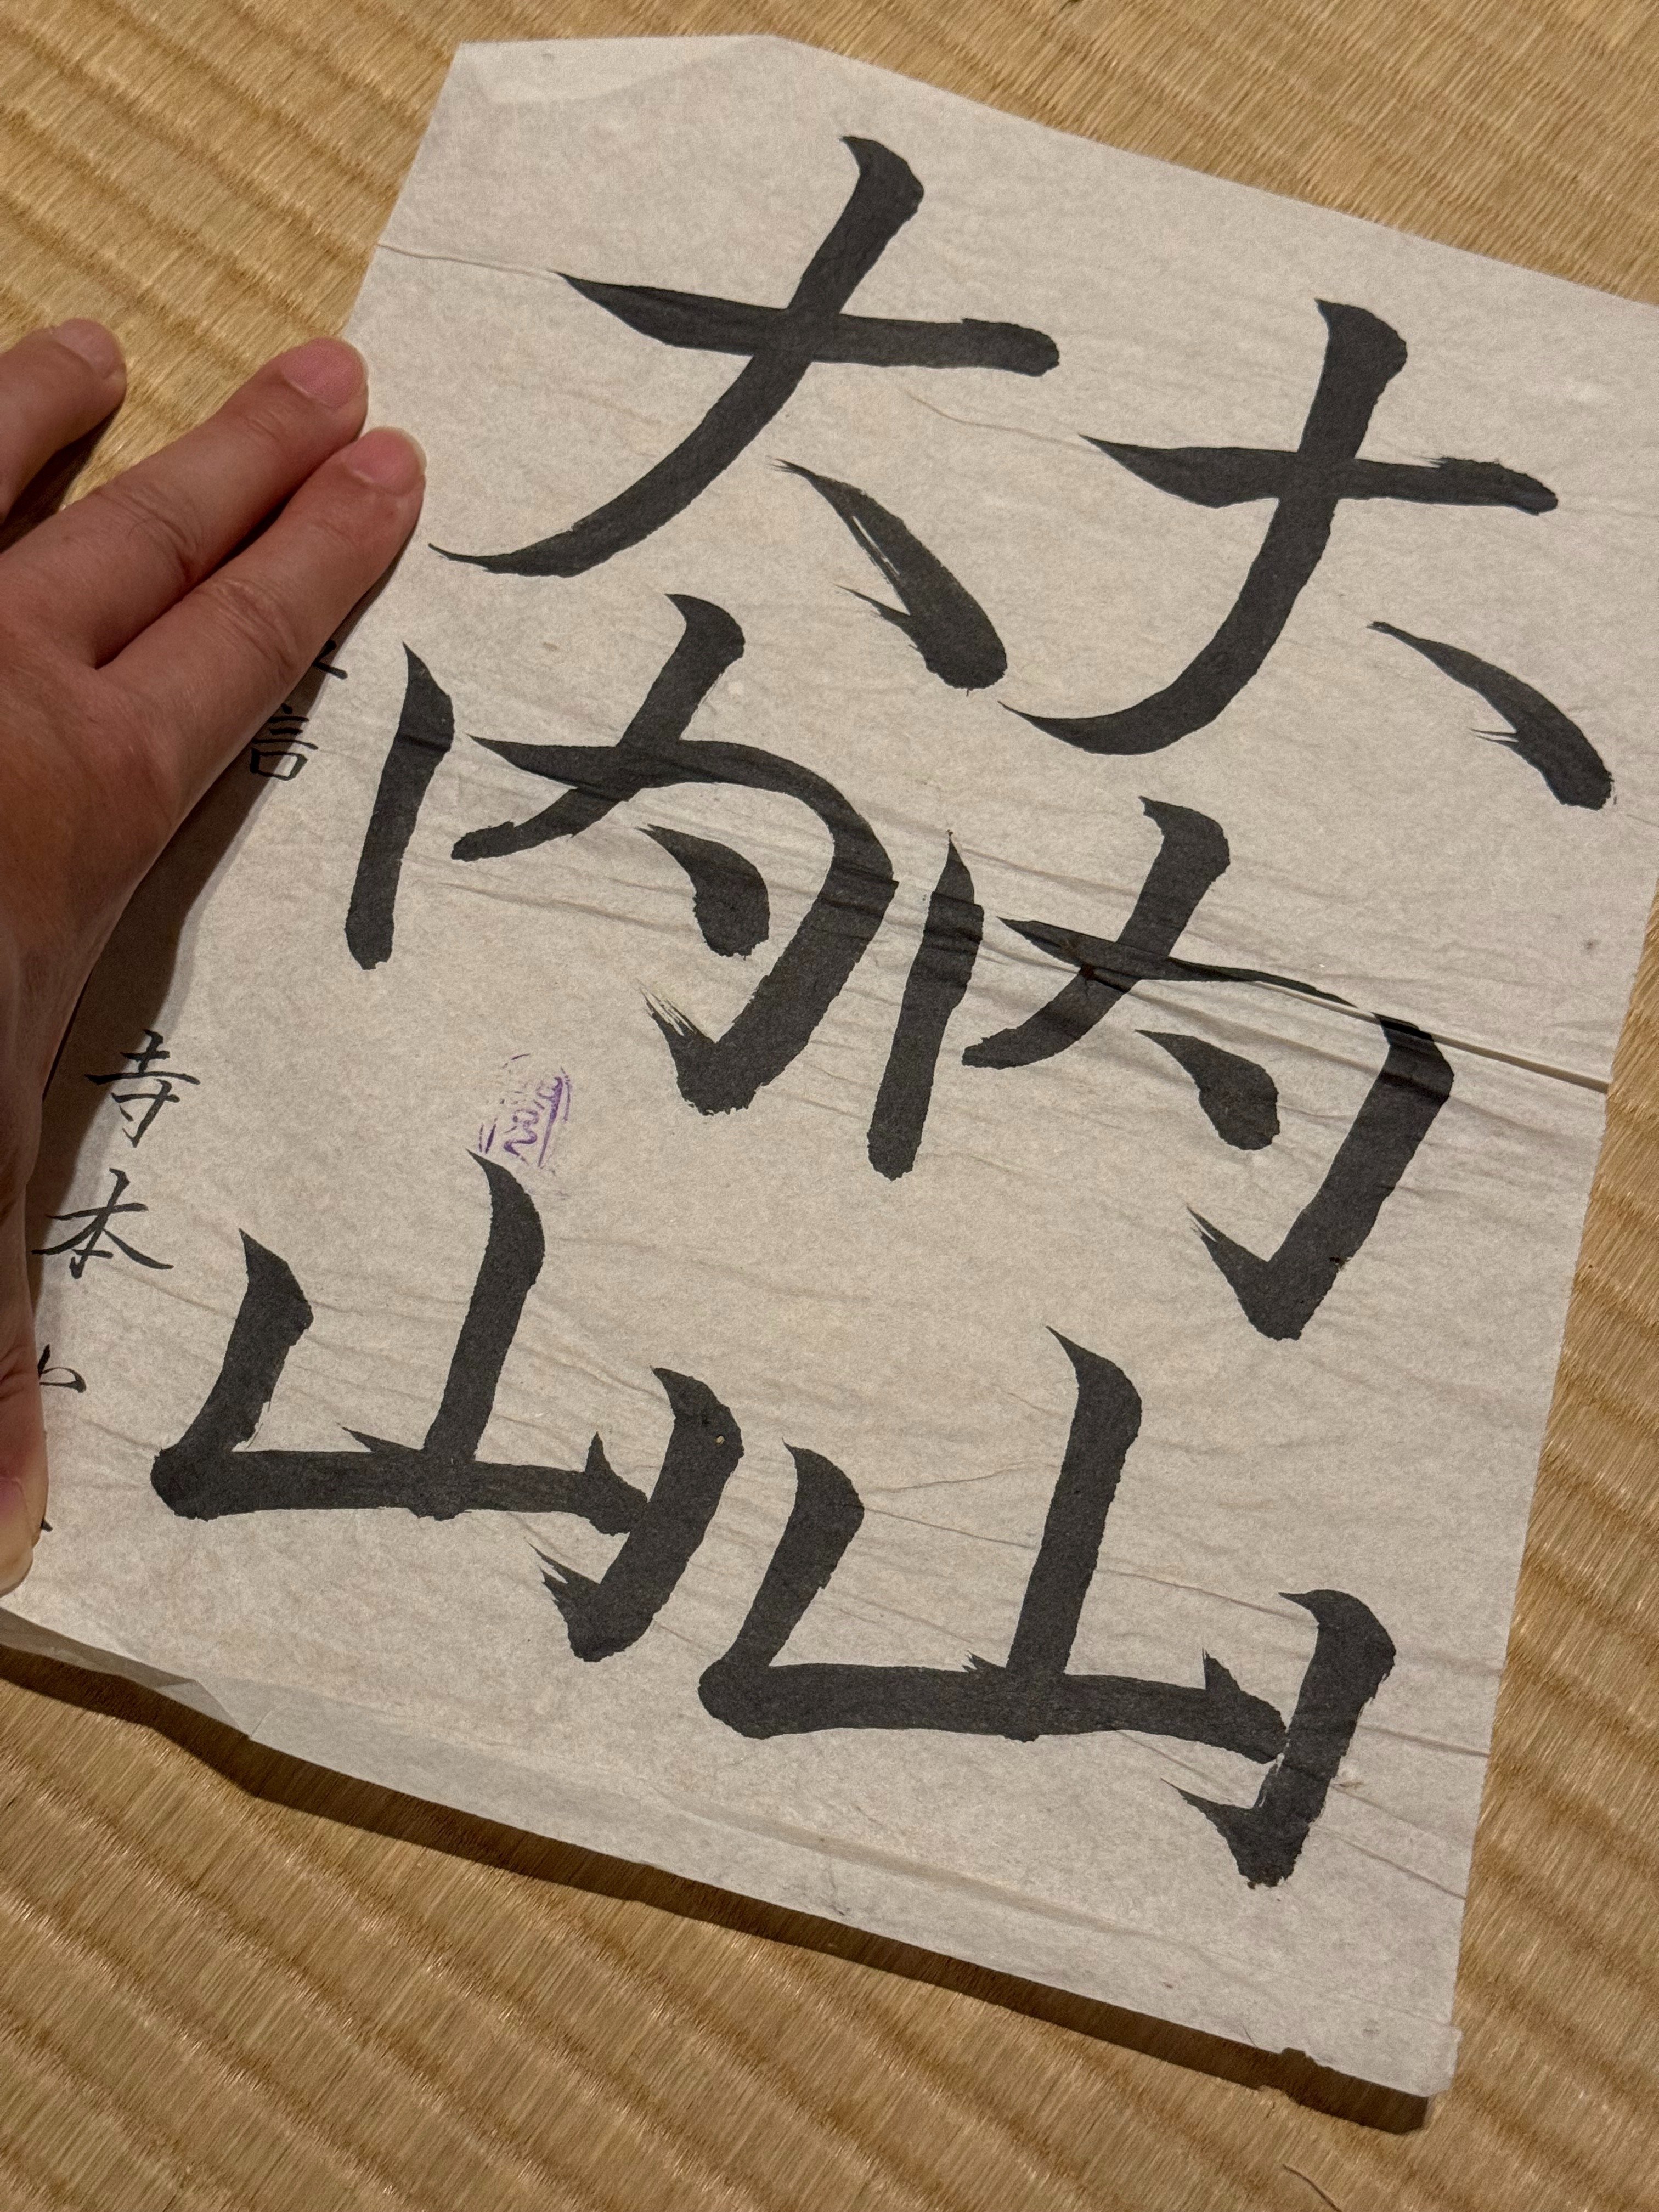 大内山
大内山
信 寺本